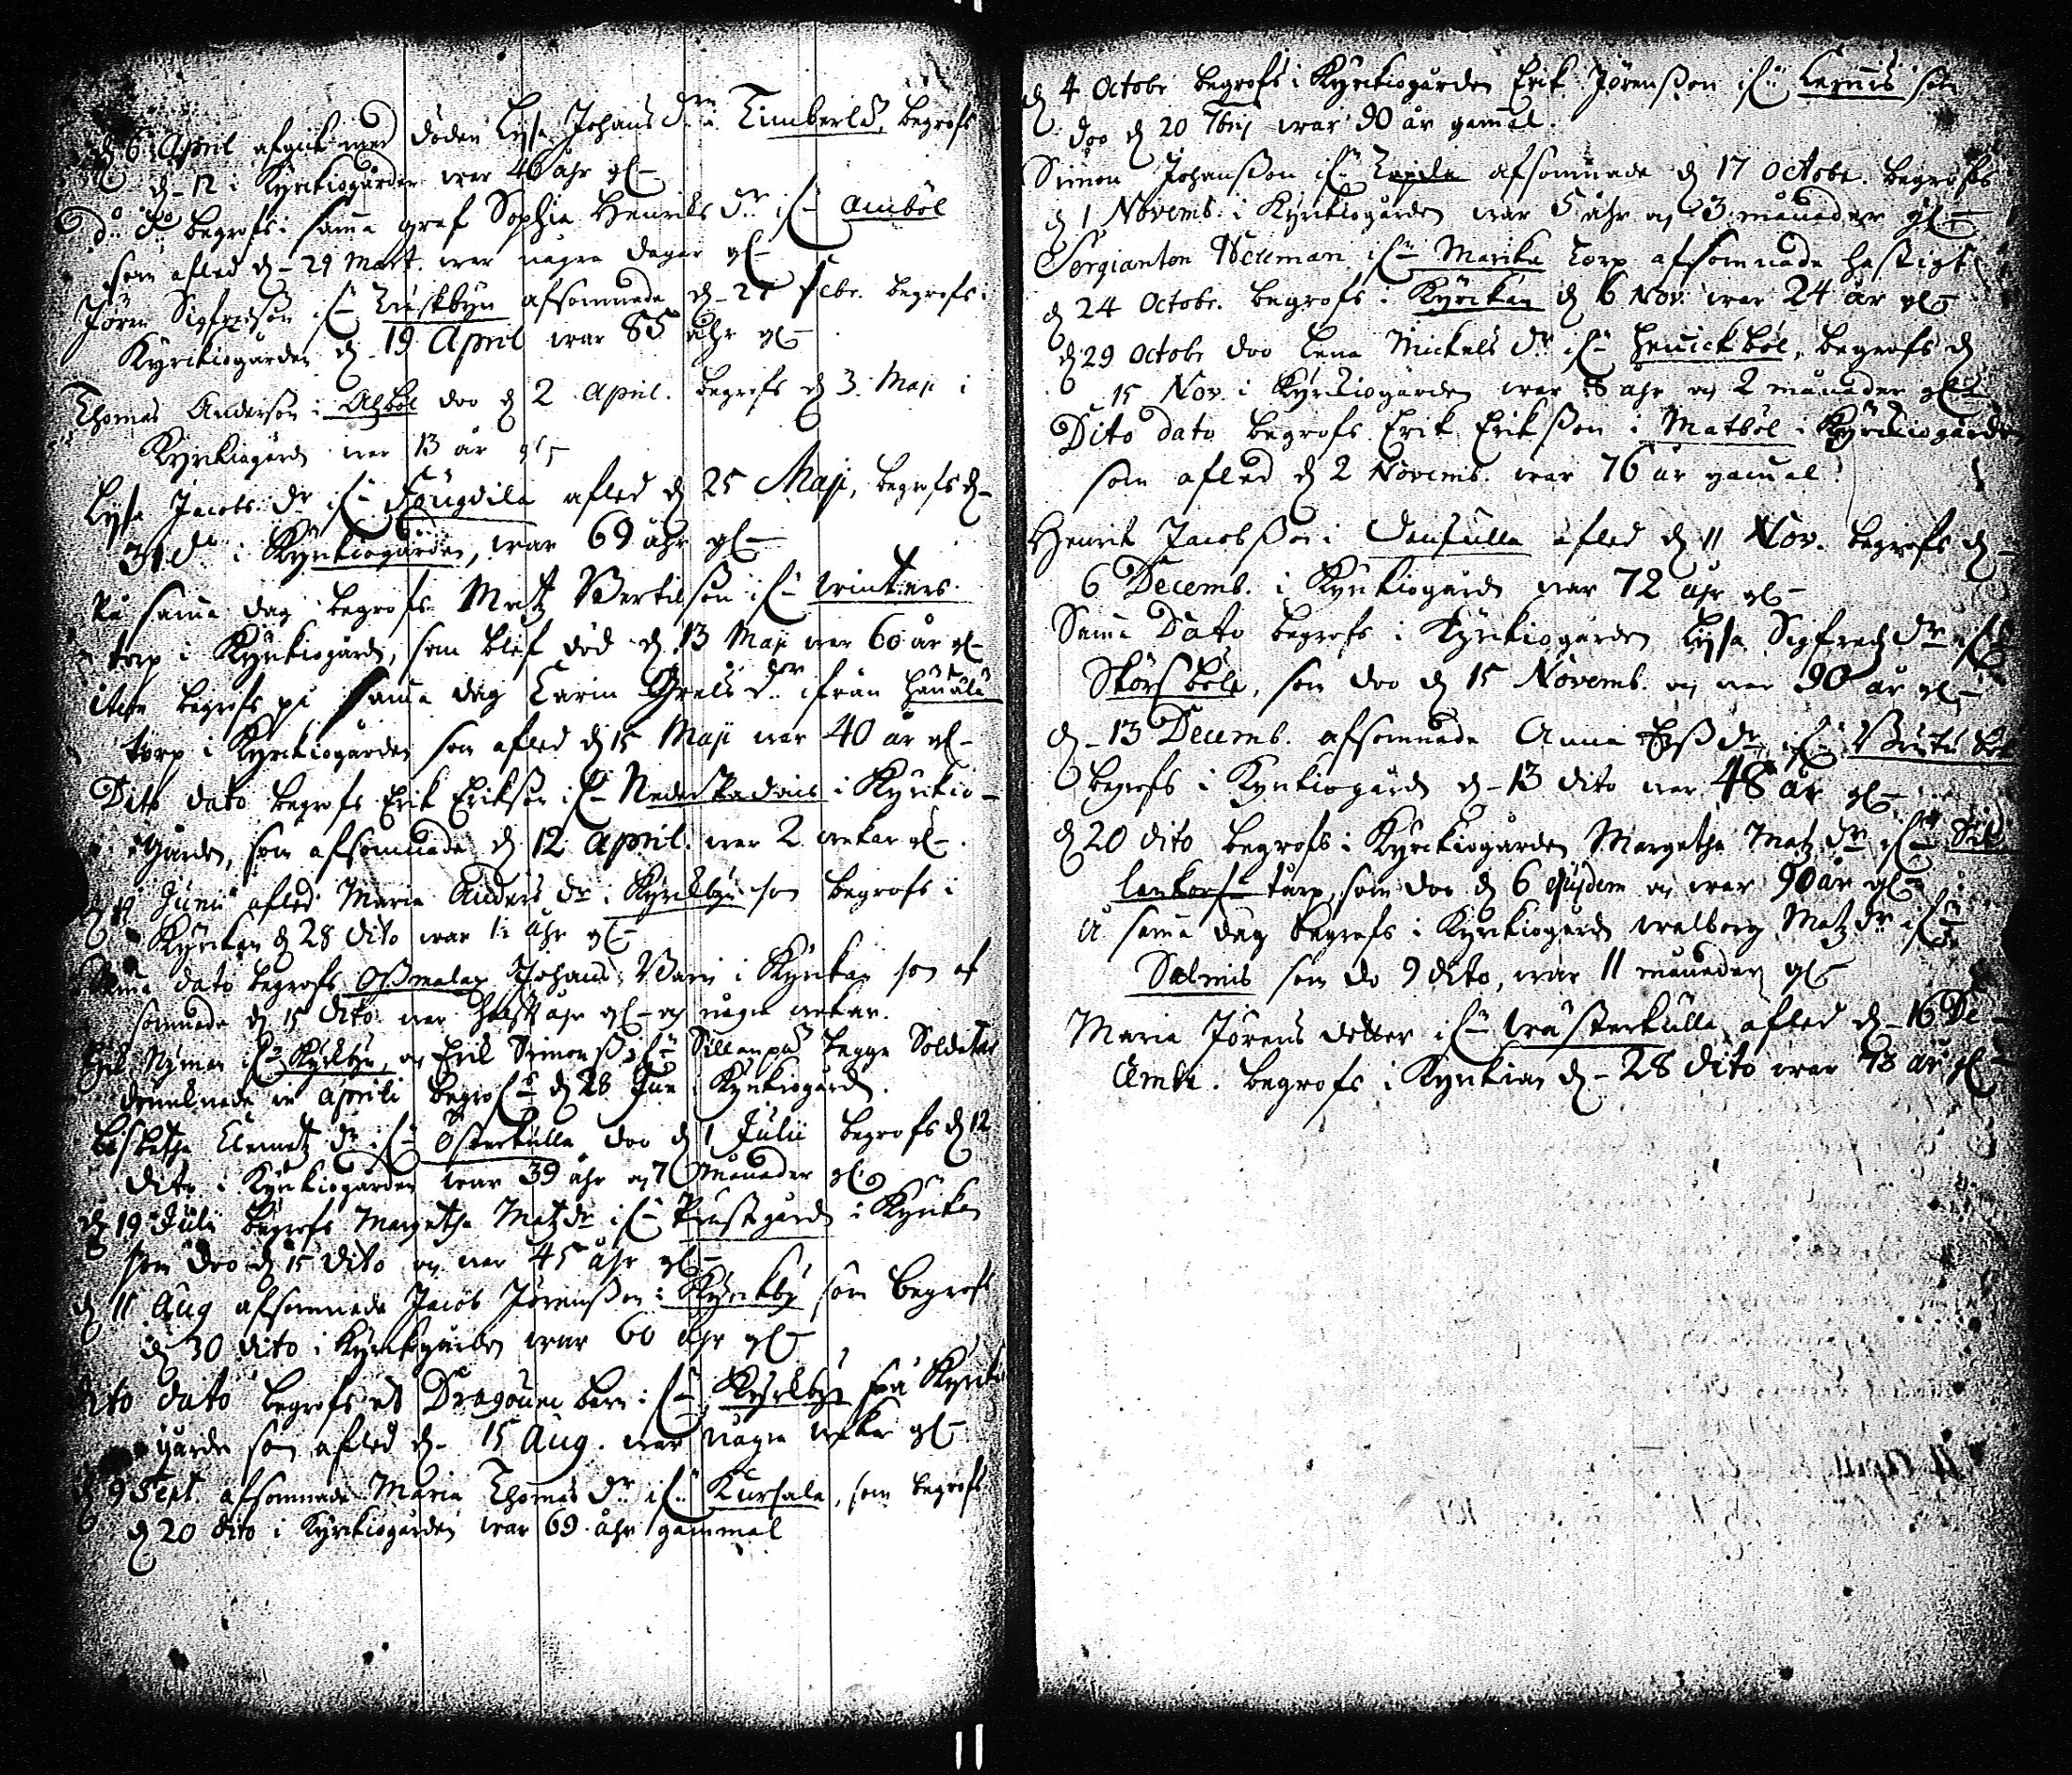 d 6 April afgick med döden Lysa Johans dr i Timberlä, begrofs
d 12 i Kyrkiogården war 46 åhr gl
do do begrofs i samma graf Sophia Henriks dr if Amböl
som afled d 29 Mart. war någre dagar gl
Jören Sigfredson if Luskbyn afsomnade d 27 Febr. begrofs i
Kyrkiogården d 19 April war 85 åhr gl
Thomas Anderson i Alsböl doo d 2 April. begrofs d 3 Maji i
Kyrkiogård war 13 år gl
Lysa Jacobs dr if Fougdila afled d 25 Maji, begrofs d
31 do i Kyrkiogården, war 69 åhr gl
På samma dag begrofs Matz Bertilson if winters
torp i Kyrkiogård, som blef död d 13 Maji war 60 år gl
item begrofs på samma dag Carin Grels dr ifrån
torp i Kyrkiogården som afled d 15 Maji war 40 år gl
Dito dato begrofs Erik Erikson if Neder i Kyrkio-
gården, som afsomnade d 12 April. war 2 wekar gl
Junii afled Maria Anders dr i Kyrkbyn som begrofs i
Kyrkan d 28 dito war åhr gl
Samma dato begrofs Johans Barn i Kyrkan som af
somnade d 15 dito war åhr gl og någre wekar.
Erik Nyman if Kyrkbyn, og Erik Simonß if Sillanpä begge Soldater
drunknade in Aprili begrof d 28 Jun i Kyrkiogård.
Lisbetha Clemetz dr if Österkulla doo d 1 Julii begrofs d 12
dito i Kyrkiogården war 39 åhr og 7 Månader gl
d 19 Julii begrofs Margetha Matz dr if Prästgård i Kyrkan
som doo d 15 dito og war 45 åhr gl
d 11 Aug afsomnade Jacob Jörensßon i Kyrkby som begrofs
d 30 dito i Kyrkogården war 60 åhr gl
Dito dato begrofs ett Dragoune barn if Kyrkbyn på Kyrkio
gården som afled d 15 Aug. war någre weker gl
d 9 Sept. afsomnade Maria Thomas dr if Kursala, som begrofs
d 20 dito i Kyrkiogården war 69 åhr gammal
d 4 Octobr begrofs i Kyrkiogården Erik Jörensßon if Lernis som
doo d 20 7bris war 90 år gamal.
Simon Johansßon if afsomnade d 17 Octobr. begrofs
d 1 Novemb. i Kyrkiogården war 5 åhr og 3 månader gl
Sergianten Wekman if Marike torp afsomnade hastigt
d 24 Octobr. begrofs i Kyrkan d 6 Nov. war 24 år gl
d 29 Octobr doo Lena Mickels dr if Henrickböl, begrofs d
15 Nov. i Kyrkiogården war 8 åhr og 2 månader gl
Dito dato begrofs Erik Eriksßon i Matböl i Kyrkiogården
som afled d 2 Novemb. war 76 år gamal.
Henrik Jacobsßon i Danskulla afled d 11 Nov. begrofs d
6 Decemb. i Kyrkiogård war 72 åhr gl
Samma Dato begrofs i Kyrkiogården Lysa Sigfredz dr if
Skörsböle, som doo d 15 Novemb. og war 90 år gl
d 13 Decemb. afsomnade Anna dr if
begrofs i Kyrkiogård d 13 dito war 48 år gl
d 20 dito begrofs i Kyrkiogården Margetha Matz dr if
torp, som doo d 6 ejusdem og war 90 år gl
å samma dag begrofs i Kyrkiogård Walborg Matz dr if
Salmis som do 9 dito, war 11 månader gl
Maria Jörens dotter if Träskerkulla afled d 16 De
cembr. begrofs i Kyrkian d 28 dito war 73 år gl